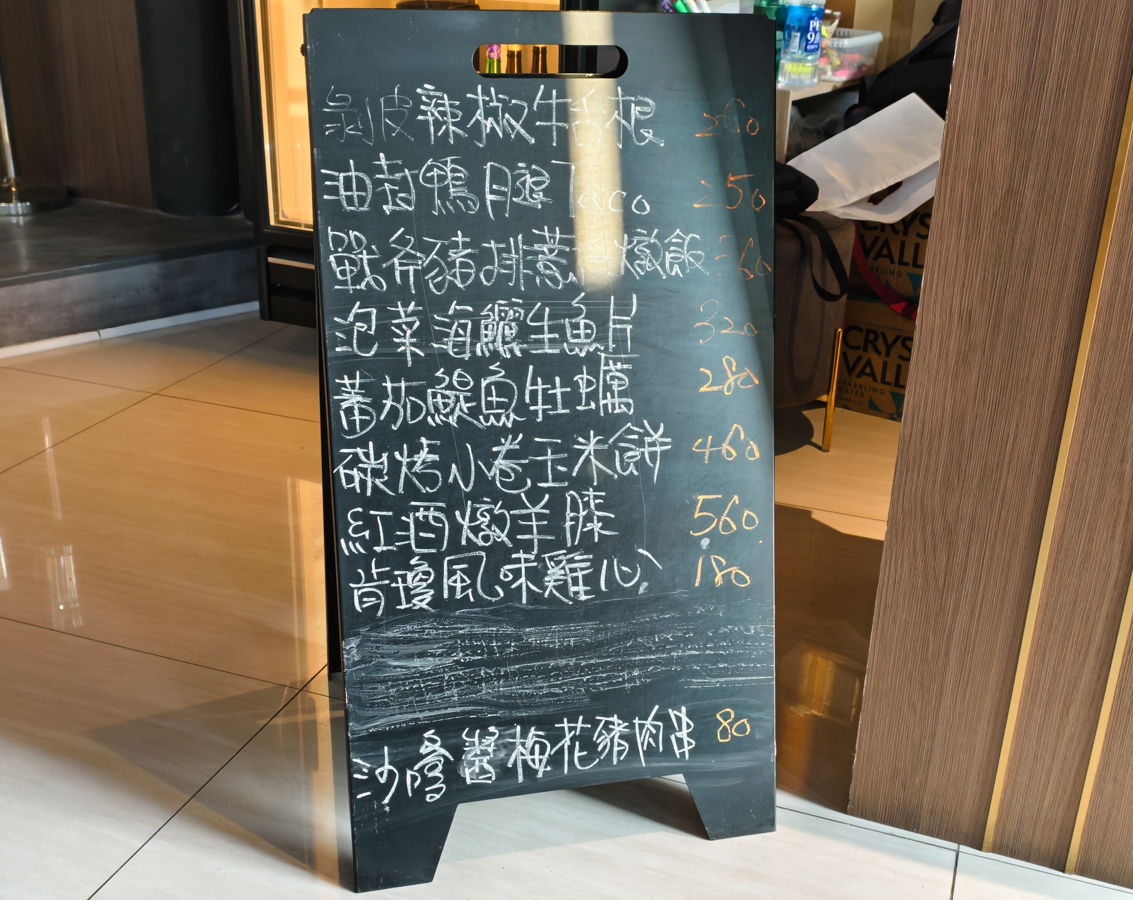 剝皮辣椒牛舌根 260
油封鴨腿Taco 250
戰斧豬排薏 燉飯 360
泡菜海鱺生魚片 320
蕃茄鯷魚牡蠣 280
碳烤小卷玉米餅 460
紅酒燉羊膝 560
肯瓊風味雞心 180
沙嗲醬梅花豬肉串 80
CRYS
VALL
SPARKLING
CRYS
VALL
SPARKLING
WATER